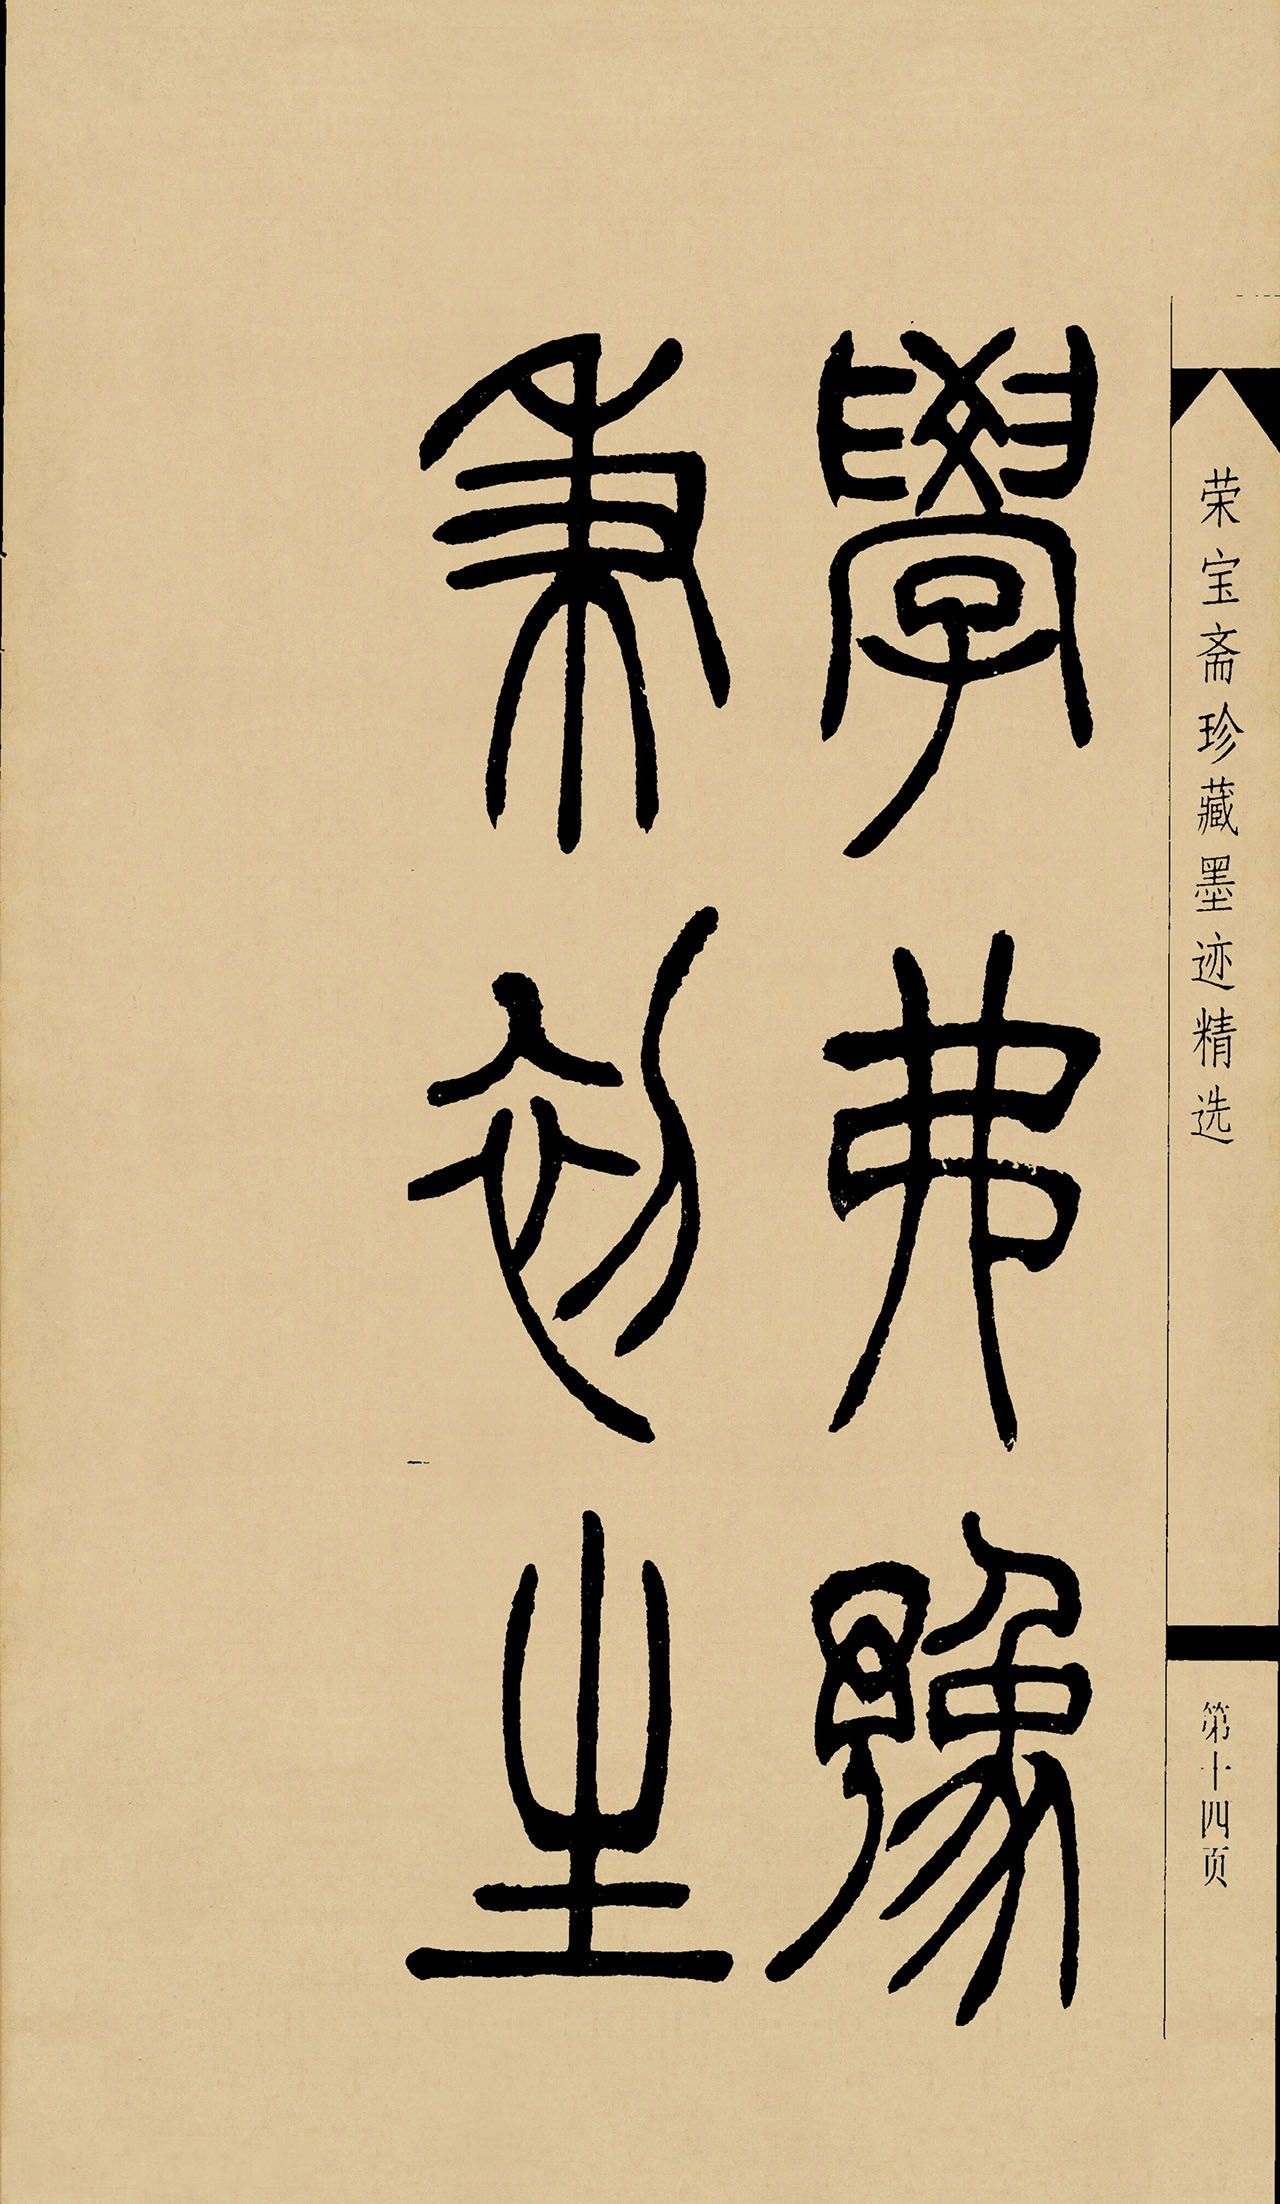 荣宝斋珍藏墨迹精选
第十四页
學弗豫
秉初生